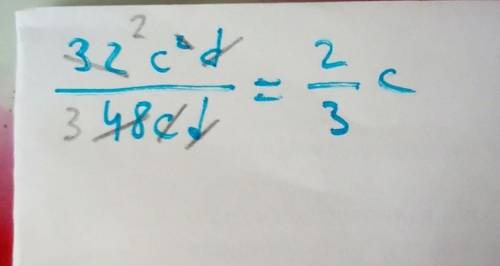 32 2 c² d
3 48 c d
= 2/3 c